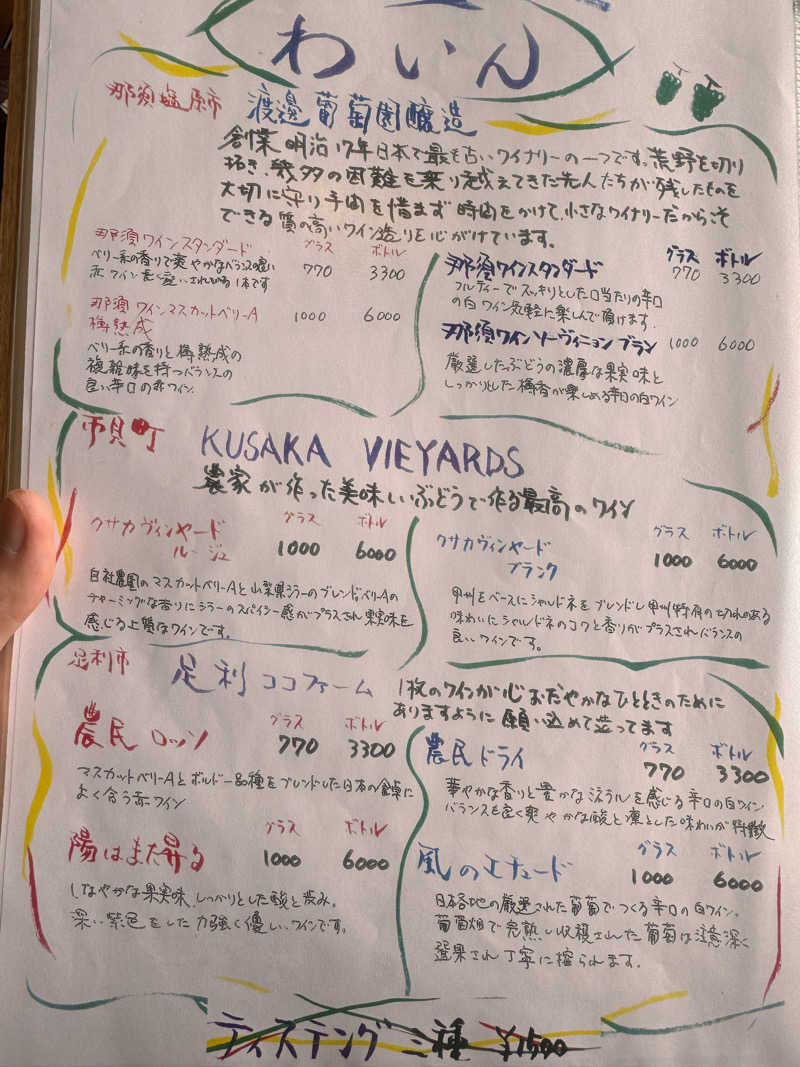 わいん
那須塩原市
渡邊葡萄園醸造
創業明治17年日本で最も古いワイナリーの一つです。荒野を切り
拓き、幾多の困難を乗り越えてきた先人たちが残したものを
大切に守り手間を惜まず時間をかけて、小さなワイナリーだからこそ
できる質の高いワイン造りを心がけています。
那須ワインスタンダード グラス ボトル
770 3300
ベリー系の香りで爽やかなバランスの良い
赤ワイン
那須ワインマスカットベリーA 1000 6000
樽熟成
ベリー系の香りと樽熟成の
複雑味を持つバランスの
良い辛口の赤ワイン
グラス ボトル
那須ワインスタンダード 770 3300
フルーティーでスッキリとした口当たりの辛口
の白ワイン気軽に楽しんで頂けます.
那須ワインソーヴィニョンブラン 1000 6000
厳選したぶどうの濃厚な果実味と
しっかりとした樽香が楽しめる辛口の白ワイン
市貝町
KUSAKA VIEYARDS
農家が作った美味しいぶどうで作る最高のワイン
クサカヴィンヤード グラス ボトル
ルージュ 1000 6000
自社農園のマスカットベリーAと山梨県シラーのブレンドベリーAの
チャーミングな香りにシラーのスパイシー感がプラスされ果実味を
感じる上質なワインです.
グラス ボトル
クサカヴィンヤード 1000 6000
ブランク
甲州をベースにシャルドネをブレンドし甲州特有の切れのある
味わいにシャルドネのコクと香りがプラスされバランスの
良いワインです。
足利市
足利ココファーム
1枚のワインが心おだやかなひとときのために
ありますように願い込めて造ってます
グラス ボトル
農民ロッソ 770 3300
マスカットベリーAとボルドー品種をブレンドした日本の食卓に
よく合う赤ワイン
グラス ボトル
陽はまた昇る 1000 6000
しなやかな果実味、しっかりとした酸と渋み。
深い紫色をした力強く優しいワインです。
グラス ボトル
農民ドライ 770 3300
華やかな香りと豊かなミネラルを感じる辛口の白ワイン
バランスも良く爽やかな酸と凛とした味わいが特徴
グラス ボトル
風のエチュード 1000 6000
日本各地の厳選された葡萄でつくる辛口の白ワイン。
葡萄畑で完熟し収穫された葡萄は注意深く
選果され丁寧に搾られます.
ティステング 三種 ¥1500